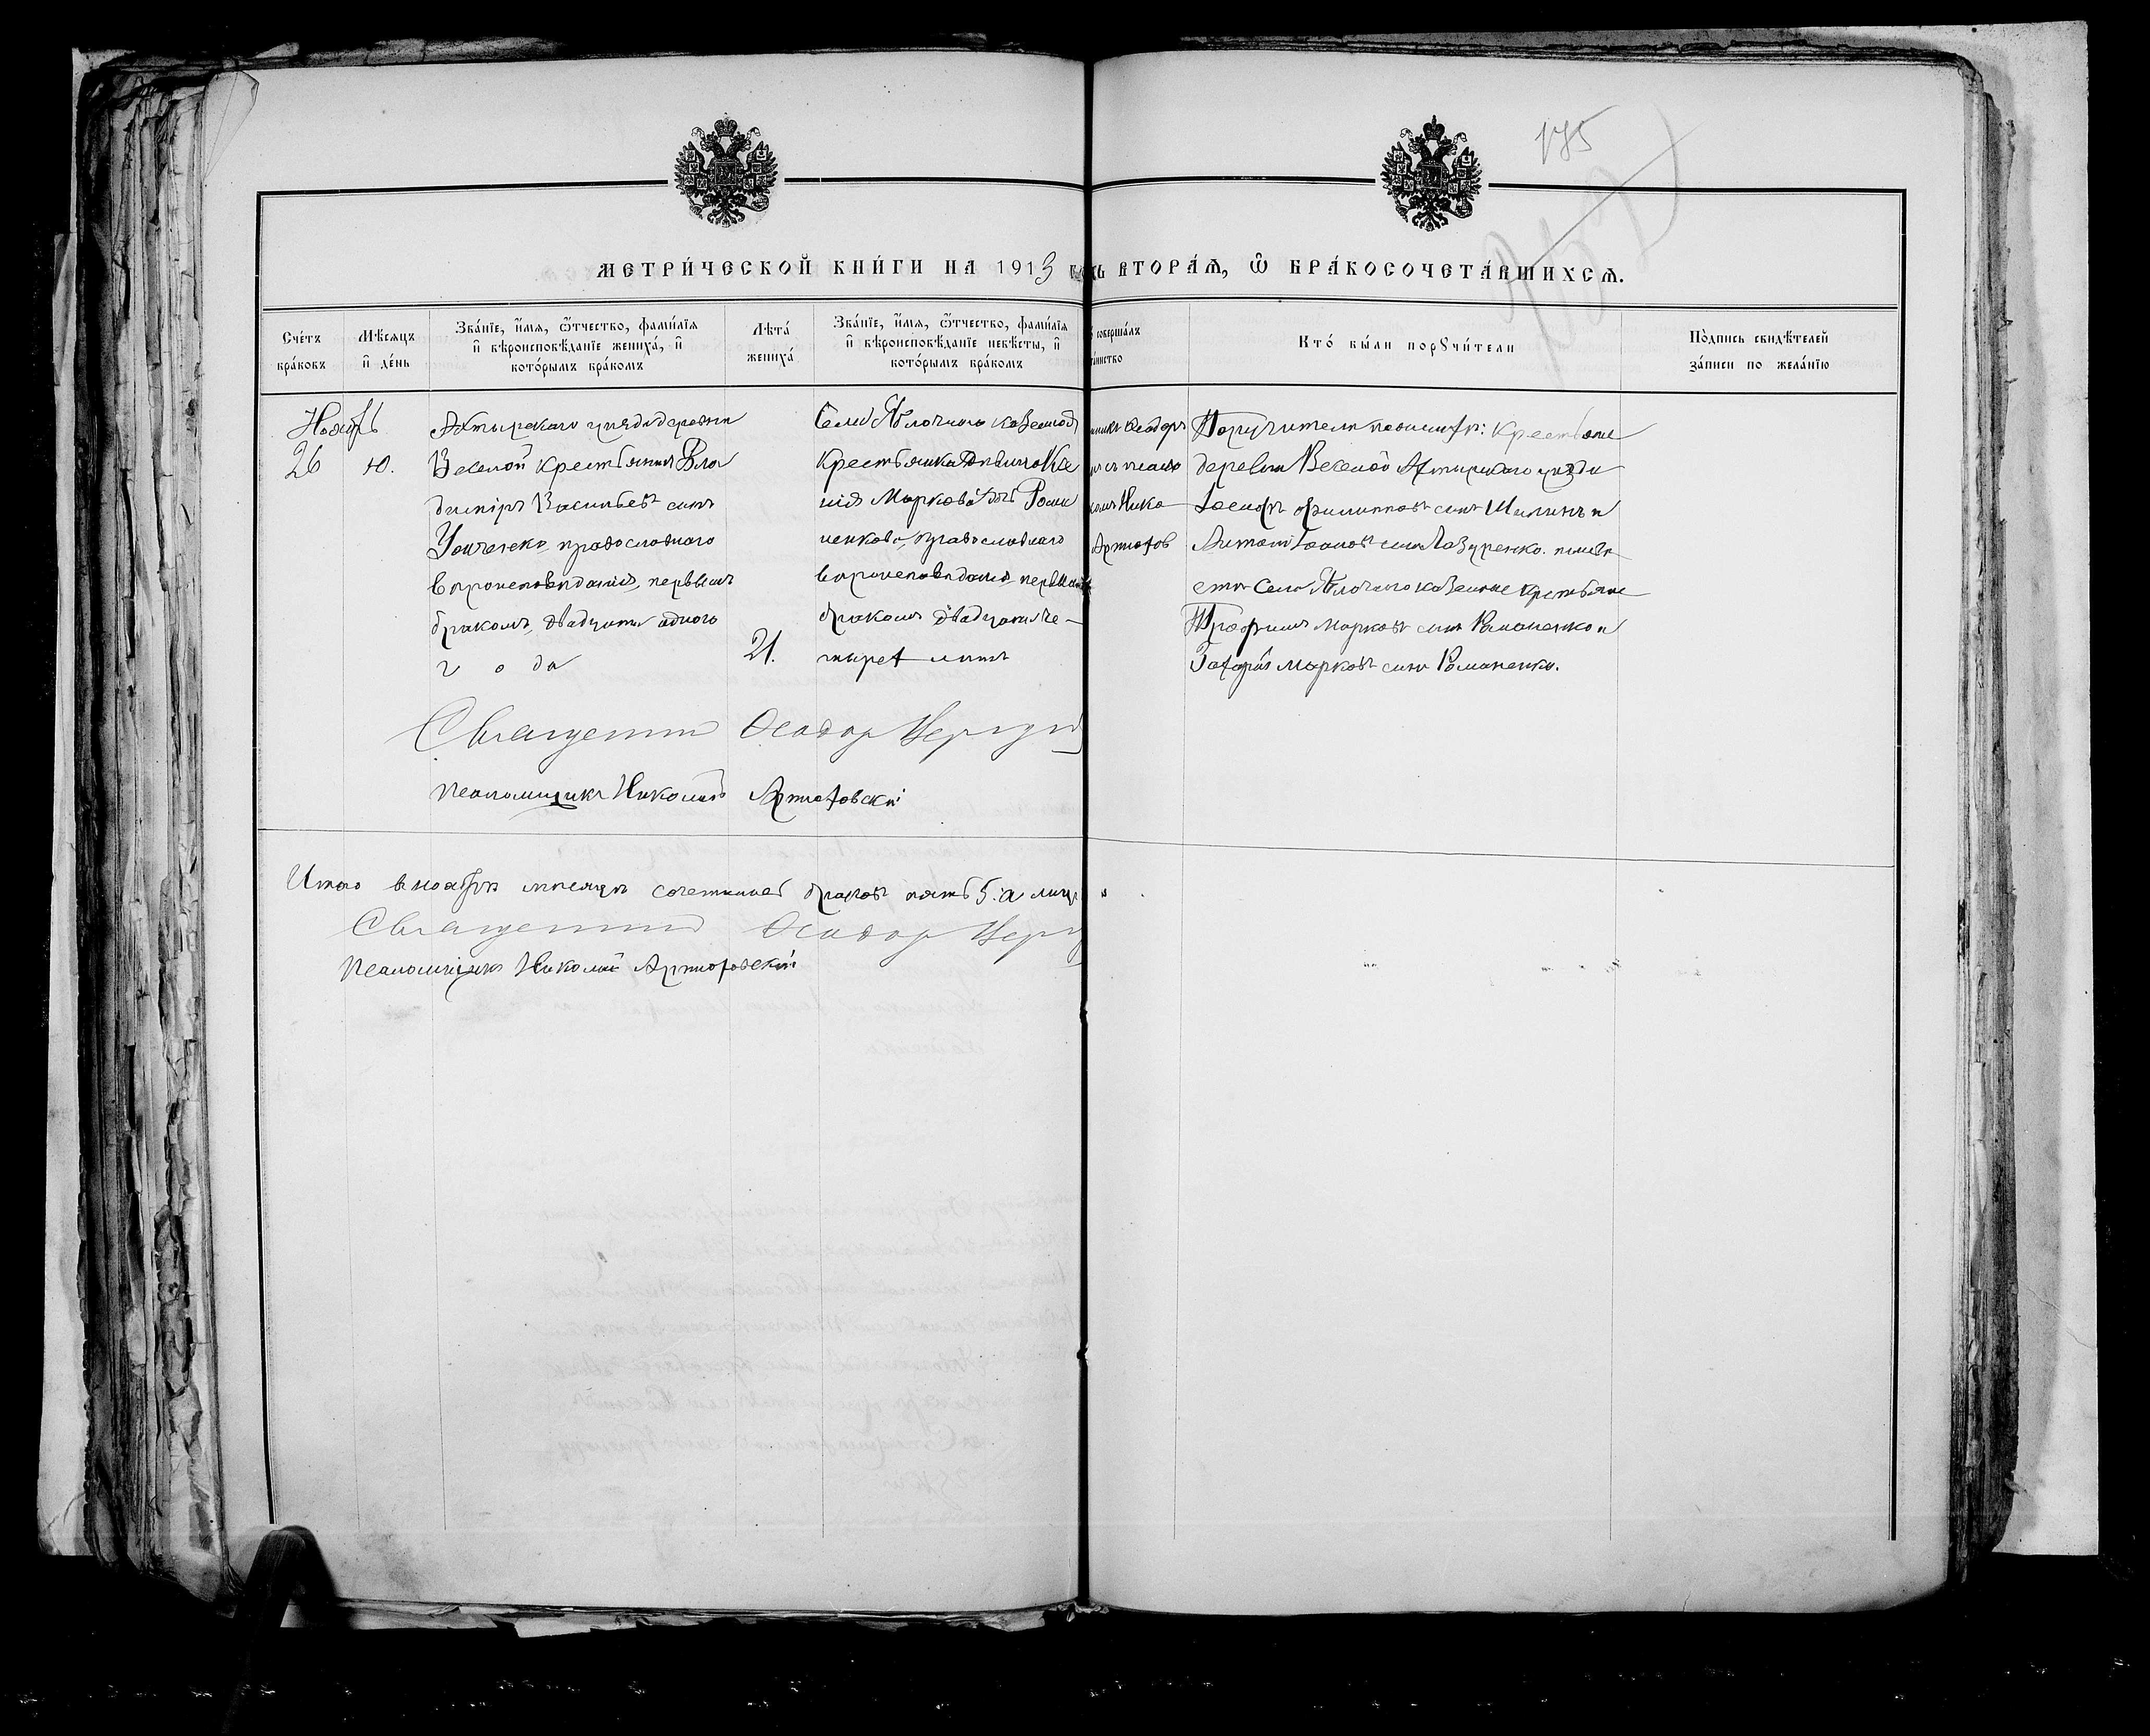 175
МЕТРИ́ЧЕСКОЙ КНИ́ГИ НА 1913 ВТОРА́Ѧ, Ѡ БРА́КОСОЧЕТА́ВШИХСѦ.
Сче́тъ бра́ковъ
Мѣ́сяцъ и҆ де́нь
Зва́нїе, и҆́мя, ѻ҆́тчество, фами́лїя
и҆ вѣроисповѣ́данїе жениха́, и҆
кото́рымъ бра́комъ
Лѣта́
жениха́
Зва́нїе, и҆́мя, ѻ҆́тчество, фами́лїя
и҆ вѣроисповѣ́данїе невѣ́сты, и҆
кото́рымъ бра́комъ
соверша́лъ
Кто́ бы́ли порꙋчи́тели
По́дпись свидѣ́телей
за́писи по жела́нїю
Ноябрь
26 10.
Ахтырскаго уѣзда деревни
Веселой крестьянинъ Вла
диміръ Васильевъ сынъ
православнаго
вѣроисповѣданія, первымъ
бракомъ, двадцати одного
года
21.
Села Яблочнаго казеннод
крестьянка дѣвица Ксе
нія Маркова дочь Рома
ненкова, православнаго
вѣроисповѣданія, первымъ
бракомъ двадцати че-
тырех лѣтъ
Ѳеодоръ
Нико
Артюхов
Поручители по женихѣ: крестьяне
деревни Веселой Ахтырскаго уѣзда
Іосифъ Филипповъ сынъ и
Антоній Іоановъ сынъ Лазуренко. по невѣ
стѣ: Села Яблочнаго казенные крестьяне
Трофимъ Марковъ сынъ Романенко и
Захарій Марковъ сынъ Романенко.
Священникъ Ѳеодор
Псаломщикъ Николай Артюховскій
Итого в ноябрѣ мѣсяцѣ сочетавшихся браковъ пять 5. а лицъ
Священникъ Ѳеодор
Псаломщикъ Николай Артюховскій